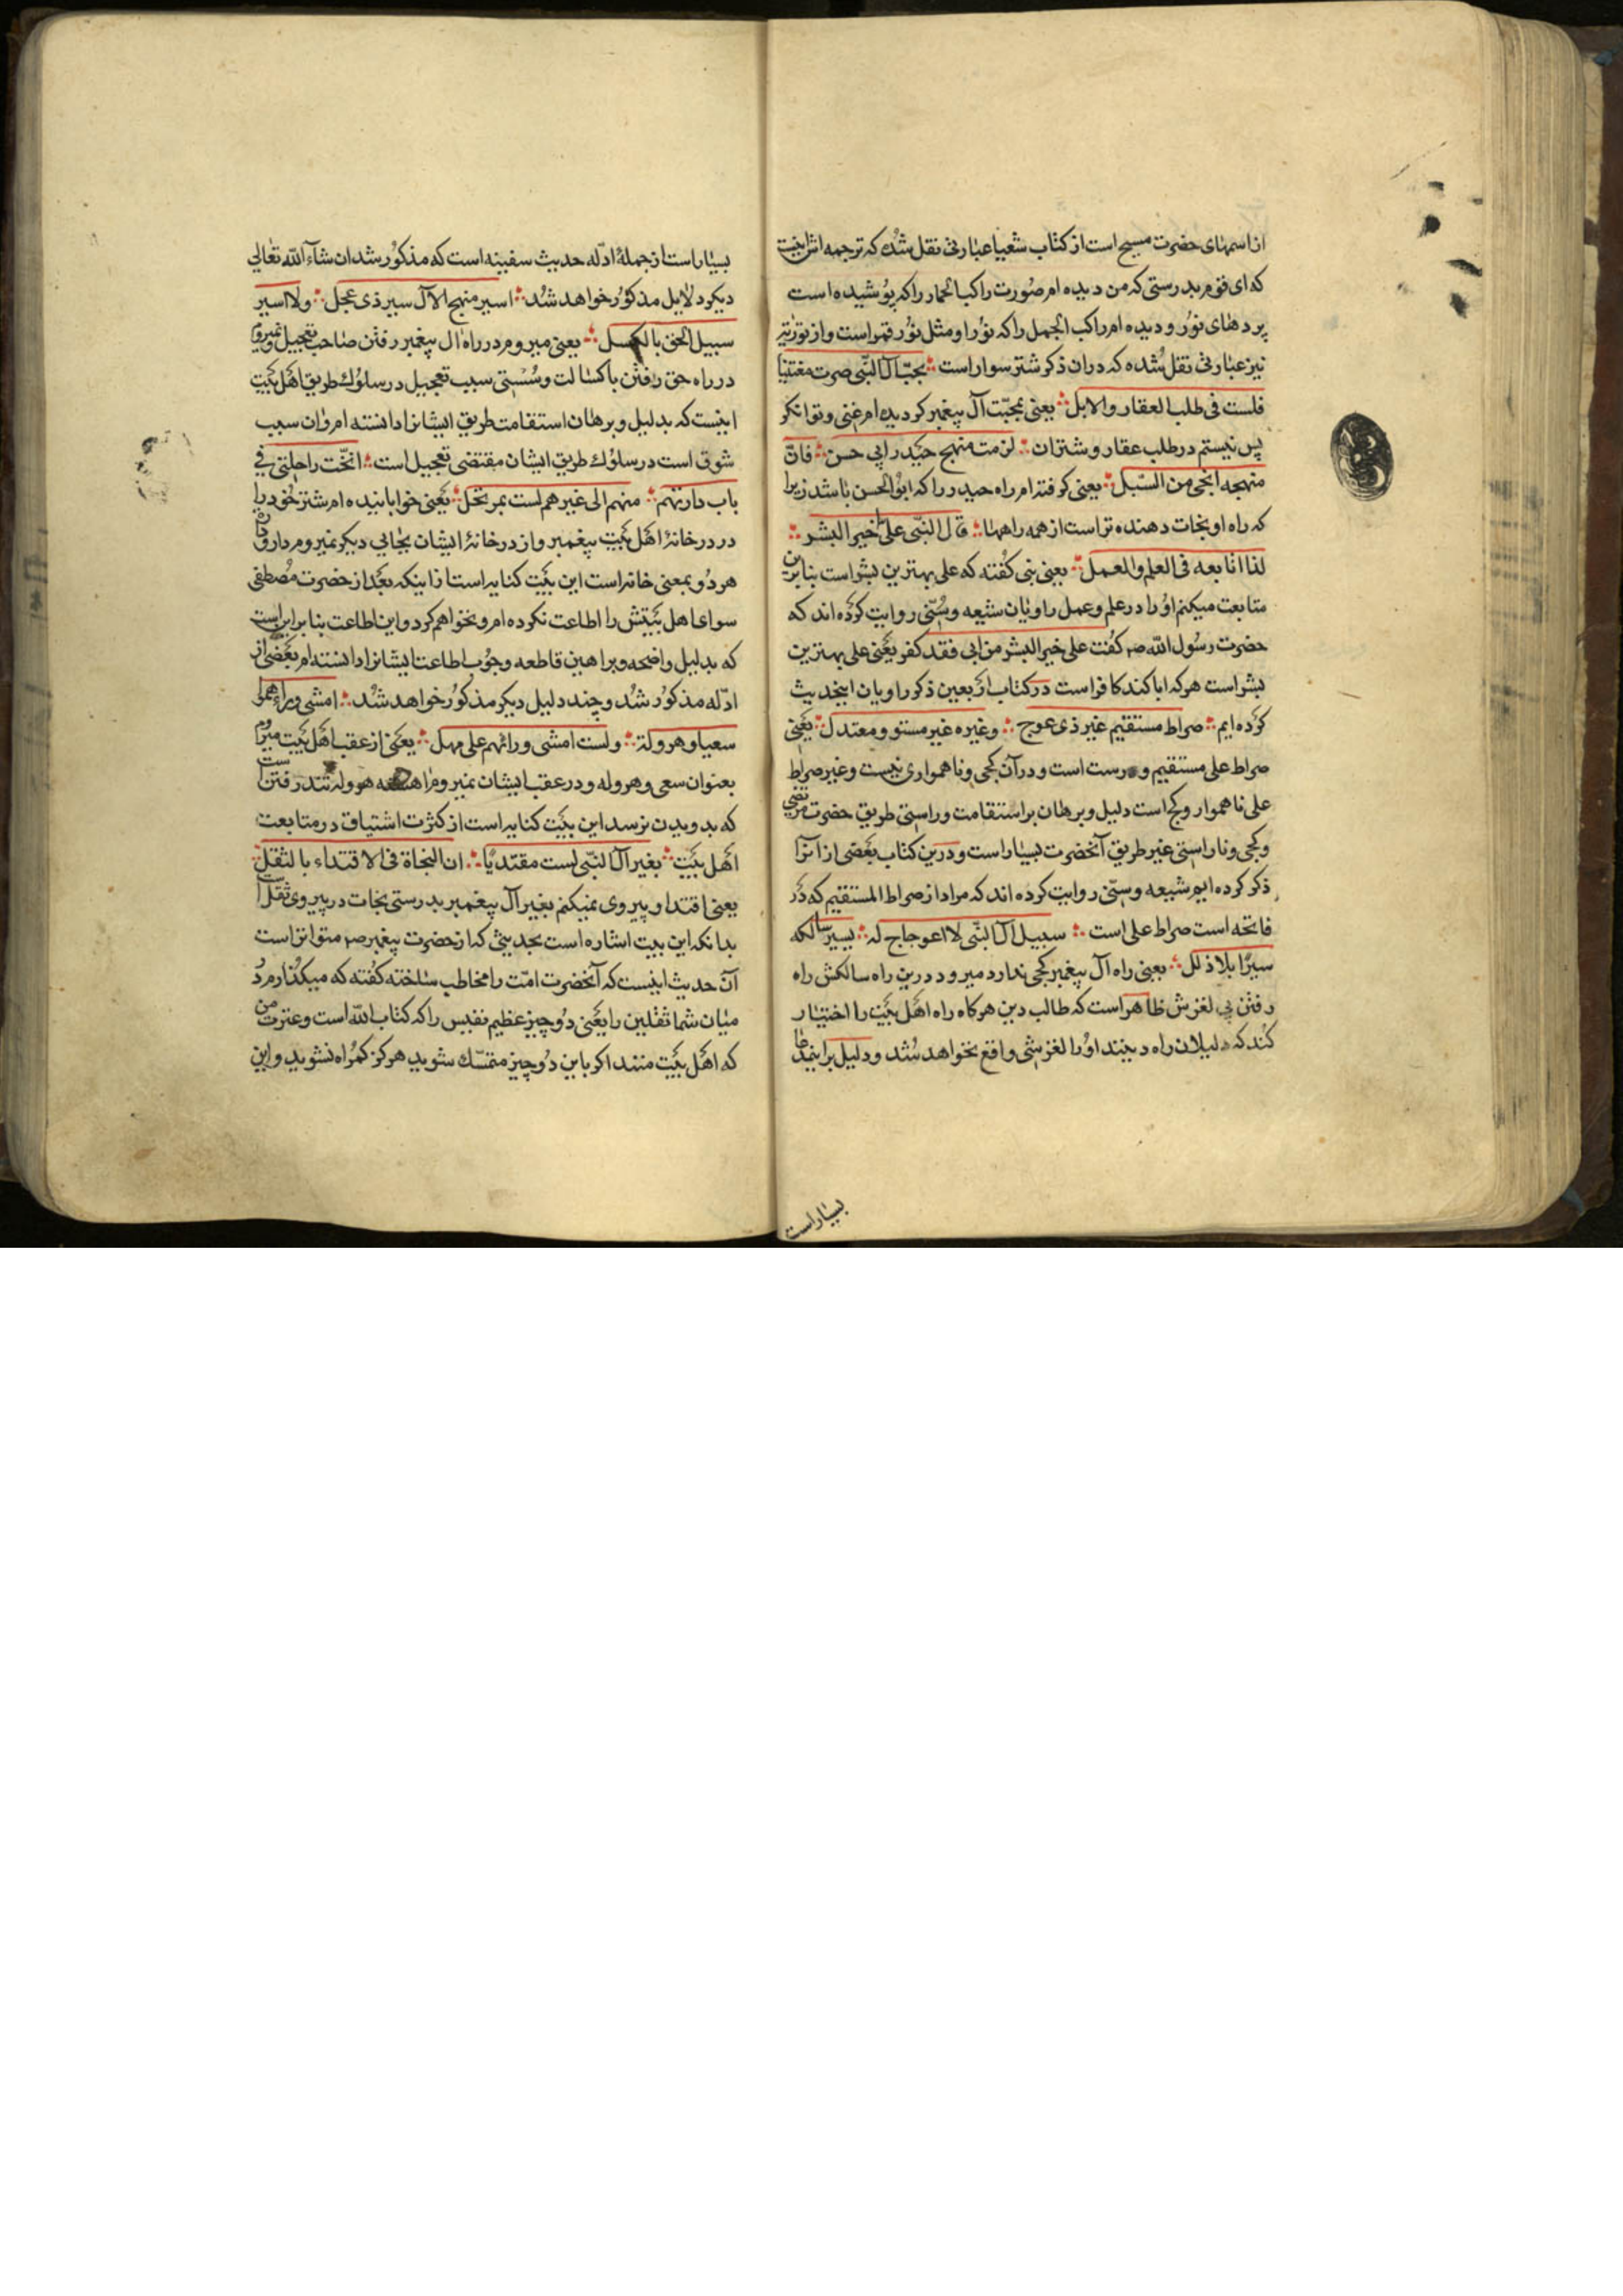 از اسمهای حضرت مسیح است از کتاب شعیا عبارتی نقل شده که ترجمه اش اینست
که ای قوم بدرستی که من دیده ام صورت راکب الحمار را که پوشیده است
پردهای نور و دیده ام راکب الجمل را که نور او مثل نور قمر است و از توریة
نیز عبارتی نقل شده که دران ذکر شتر سوار است بحب آل النبی صرت مغتنیا
فلست فی طلب العقار والابل یعنی بمحبت آل پیغمبر کردیده ام غنی و توانکر
پس نیستم در طلب عقار و شتران لزمت منهج حیدر ابی حسن فان
منهجه انجی من السبل یعنی کرفته ام راه حیدر را که ابوالحسن باشد زیرا
که راه او نجات دهنده تر است از همه راهها قال النبی علی خیر البشر
لذا اتابعه فی العلم والعمل یعنی نبی کفته که علی بهترین بشر است بنابرین
متابعت میکنم او را در علم و عمل راویان شیعه و سنی روایت کرده اند که
حضرت رسول الله صم کفت علی خیر البشر من ابی فقد کفر یعنی علی بهترین
بشر است هر که ابا کند کافر است در کتاب اربعین ذکر راویان اینحدیث
کرده ایم صراط مستقیم غیر ذی عوج وغیره غیر مستو ومعتدل یعنی
صراط علی مستقیم و درست است و در آن کجی و ناهمواری نیست و غیر صراط
علی ناهموار و کج است دلیل و برهان بر استقامت و راستی طریق حضرت مرتضی
و کجی و ناراستی غیر طریق آنحضرت بسیار است و درین کتاب بعضی از انرا
ذکر کرده ایم شیعه و سنی روایت کرده اند که مراد از صراط المستقیم که در
فاتحه است صراط علی است سبیل آل النبی لا اعوجاج له یسیر سالکه
سیرا بلا زلل یعنی راه آل پیغمبر کجی ندارد میرود درین راه سالکش راه
رفتن بی لغزش ظاهر است که طالب دین هرکاه راه اهل بیت را اختیار
کند که دلیلان راه دینند او را لغزشی واقع نخواهد شد و دلیل بر اینمدعا
بسیار است
بسیار است از جملهٔ ادله حدیث سفینه است که مذکور شد ان شاء الله تعالی
دیکر دلایل مذکور خواهد شد اسیر منهج الآل سیر ذی عجل ولا اسیر
سبیل الحق بالکسل یعنی میروم در راه آل پیغمبر رفتن صاحب تعجیل و نمیروم
در راه حق رفتن با کسالت و سستی سبب تعجیل در سلوک طریق اهل بیت
اینست که بدلیل و برهان استقامت طریق ایشانرا دانسته ام و ان سبب
شوق است در سلوک طریق ایشان مقتضی تعجیل است انخت راحلتی فی
باب دارتهم منهم الی غیرهم لست بمرتحل یعنی خوابانیده ام شتر خود را
در در خانهٔ اهل بیت پیغمبر و از در خانهٔ ایشان بجایی دیکر نمیروم دار و دارة
هر دو بمعنی خانه است این بیت کنایه است از اینکه بعد از حضرت مصطفی
سوای اهل بیتش را اطاعت نکرده ام و نخواهم کرد و این اطاعت بنا بر اینست
که بدلیل واضحه و براهین قاطعه وجوب اطاعت ایشانرا دانسته ام بعضی از
ادله مذکور شد و چند دلیل دیکر مذکور خواهد شد امشی وراءهم
سعیا وهرولة ولست امشی ورائهم علی مهل یعنی از عقب اهل بیت میروم
بعنوان سعی و هروله و در عقب ایشان نمیروم هروله تند رفتن است
که بدویدن نرسد این بیت کنایه است از کثرت اشتیاق در متابعت
اهل بیت بغیر آل النبی لست مقتدیا ان النجاة فی الاقتداء بالثقل
یعنی اقتدا و پیروی نمیکنم بغیر آل پیغمبر بدرستی نجات در پیروی ثقل است
بدانکه این بیت اشاره است بحدیثی که از حضرت پیغمبر صم متواتر است
آن حدیث اینست که آنحضرت امت را مخاطب ساخته کفته که میکذارم در
میان شما ثقلین را یعنی دو چیز عظیم نفیس را که کتاب الله است و عترت من
که اهل بیت منند اکر باین دو چیز متمسک شوید هرکز کمراه نشوید و این